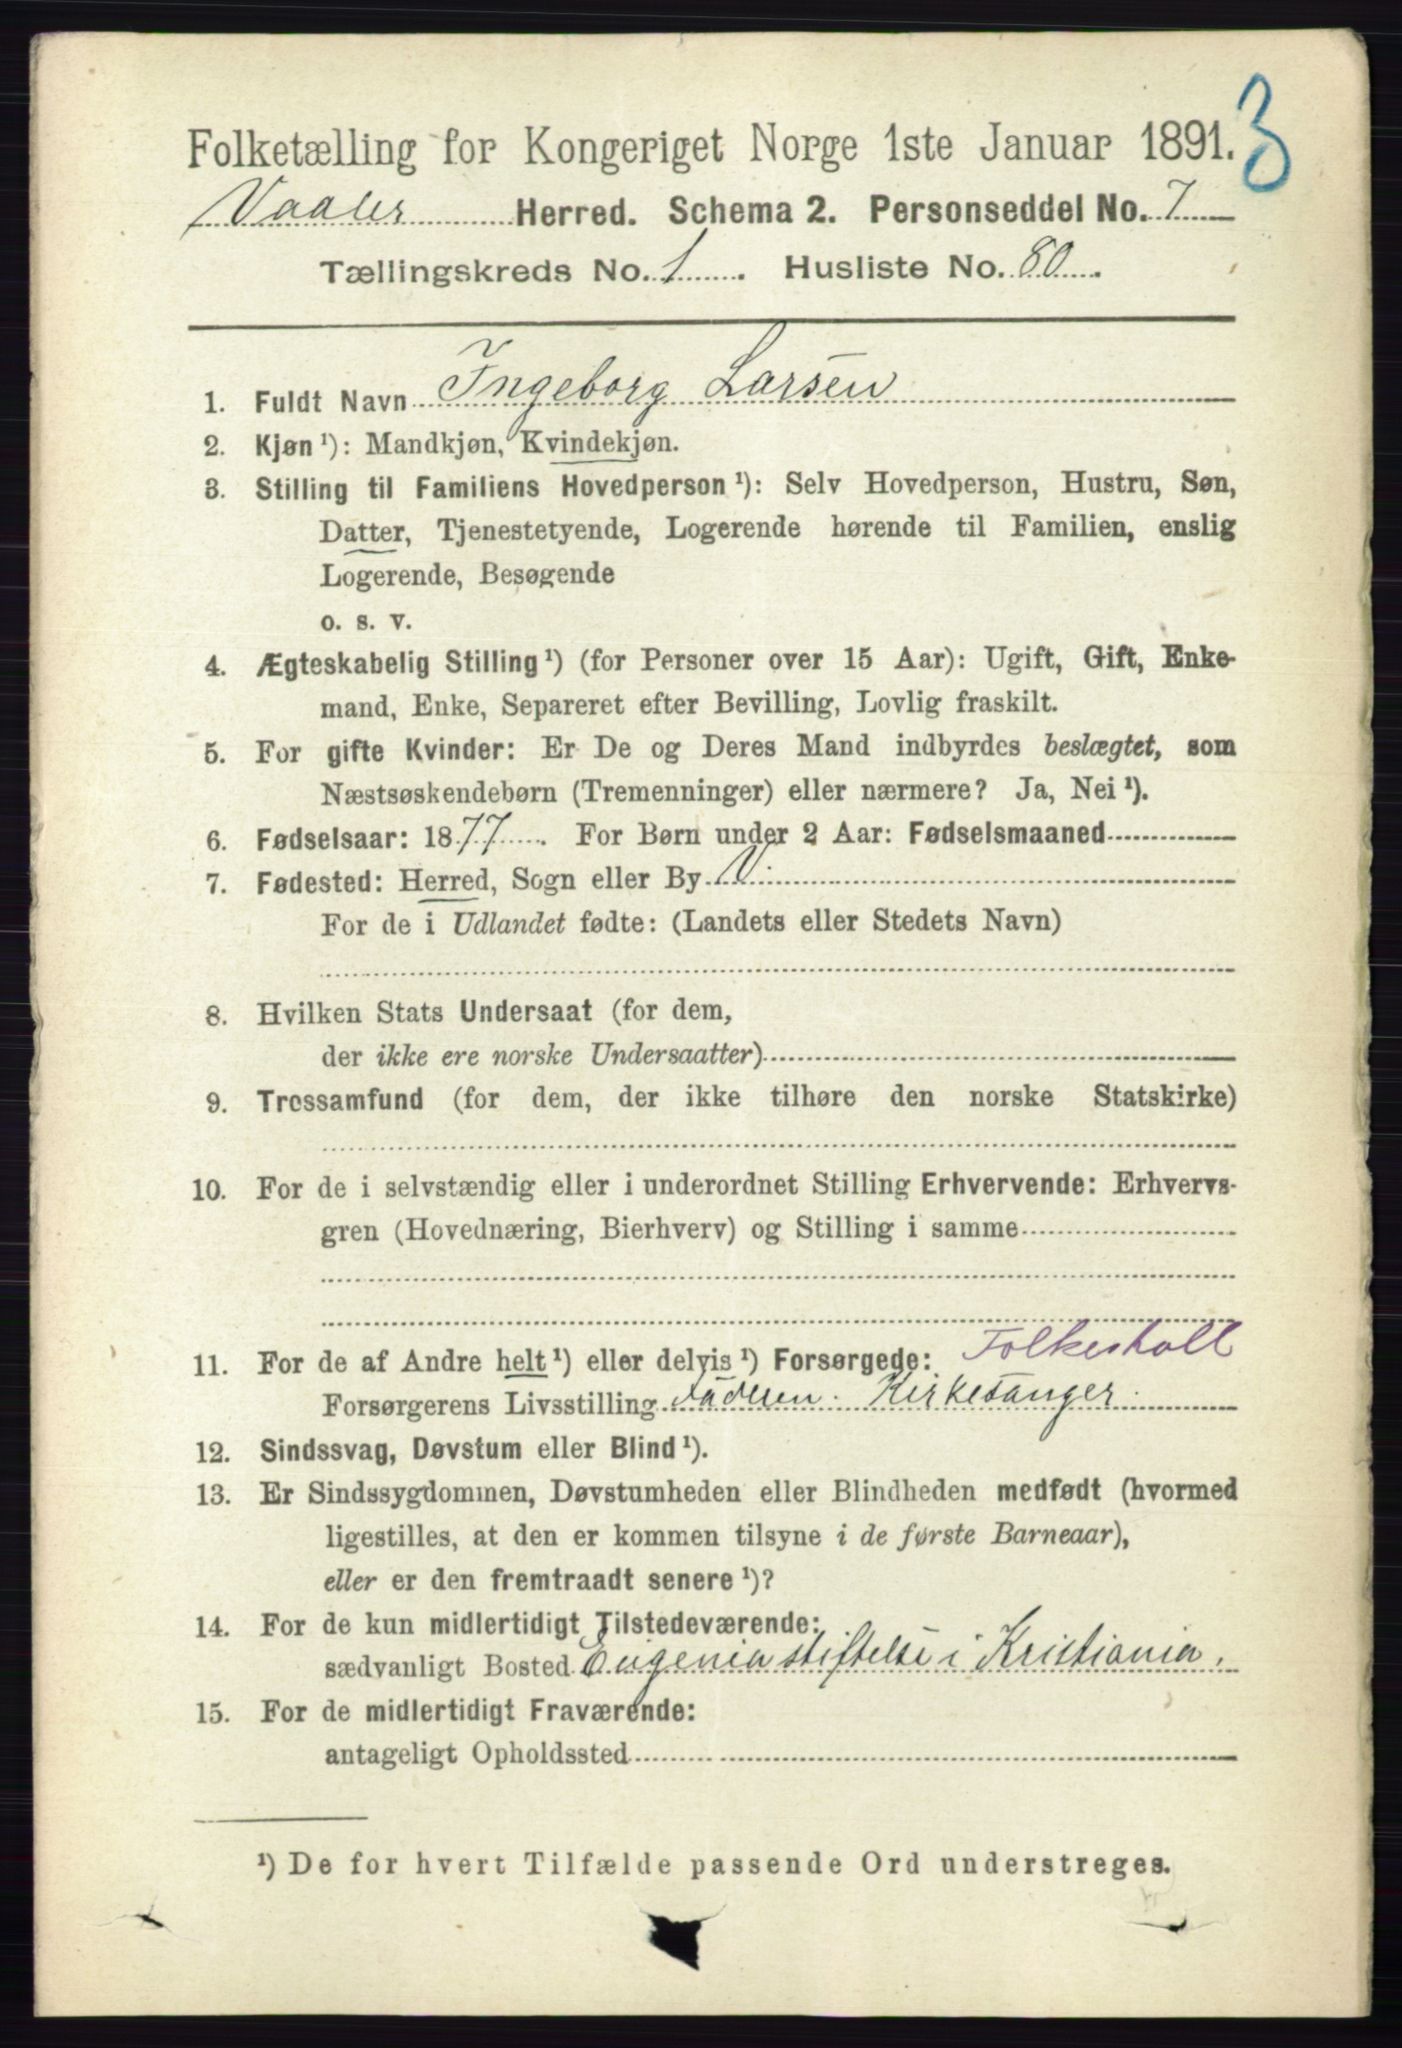 3
Folketælling for Kongeriget Norge 1ste Januar 1891.
Vaaler Herred. Schema 2. Personseddel No. 7
Tællingskreds No. 1. Husliste No. 80.
1. Fuldt Navn Ingeborg Larsen
2. Kjøn ¹): Mandkjøn, Kvindekjøn.
3. Stilling til Familiens Hovedperson ¹): Selv Hovedperson, Hustru, Søn,
Datter, Tjenestetyende, Logerende hørende til Familien, enslig
Logerende, Besøgende
o. s. v.
4. Ægteskabelig Stilling ¹) (for Personer over 15 Aar): Ugift, Gift, Enke-
mand, Enke, Separeret efter Bevilling, Lovlig fraskilt.
5. For gifte Kvinder: Er De og Deres Mand indbyrdes beslægtet, som
Næstsøskendebørn (Tremenninger) eller nærmere? Ja, Nei ¹).
6. Fødselsaar: 1877. For Børn under 2 Aar: Fødselsmaaned
7. Fødested: Herred, Sogn eller By V.
For de i Udlandet fødte: (Landets eller Stedets Navn)
8. Hvilken Stats Undersaat (for dem,
der ikke ere norske Undersaatter)
9. Trossamfund (for dem, der ikke tilhøre den norske Statskirke)
10. For de i selvstændig eller i underordnet Stilling Erhvervende: Erhvervs-
gren (Hovednæring, Bierhverv) og Stilling i samme
11. For de af Andre helt ¹) eller delvis ¹) Forsørgede:
Forsørgerens Livsstilling Faderen. Kirkesanger.
12. Sindssvag, Døvstum eller Blind ¹).
13. Er Sindssygdommen, Døvstumheden eller Blindheden medfødt (hvormed
ligestilles, at den er kommen tilsyne i de første Barneaar),
eller er den fremtraadt senere ¹)?
14. For de kun midlertidigt Tilstedeværende:
sædvanligt Bosted Eugenia stiftelse i Kristiania.
15. For de midlertidigt Fraværende:
antageligt Opholdssted
¹) De for hvert Tilfælde passende Ord understreges.